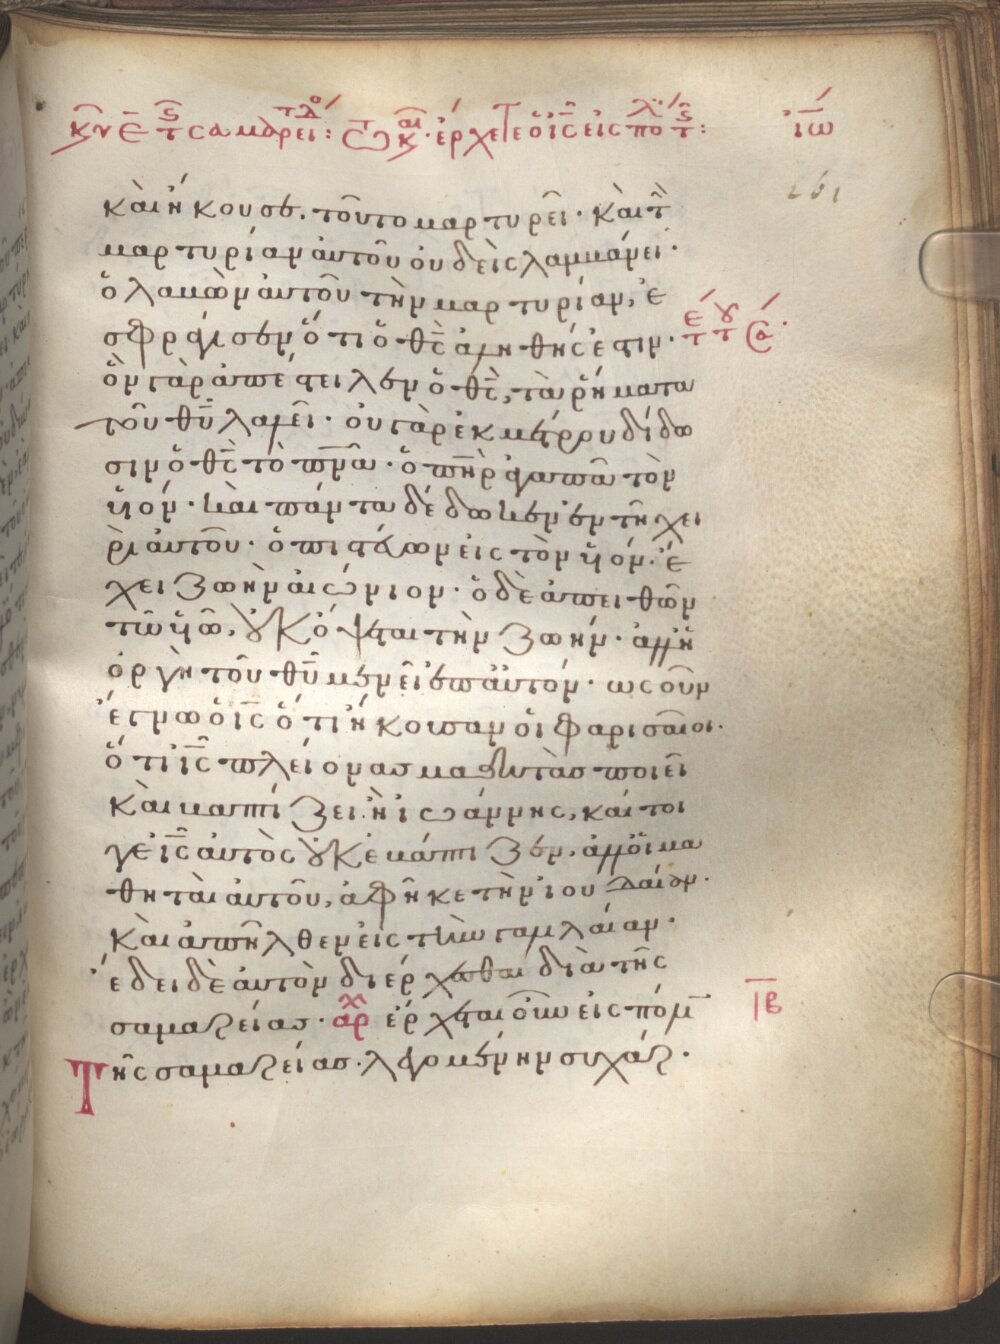 κυ ε τ σαμαρει: τω κ· ερχετε ὁ ις εἰς πο τ: ἰω
261
καὶ ἤκουσεν, τοῦτο μαρτυρεῖ· καὶ τὴν
μαρτυρίαν ἀυτοῦ οὐδεὶς λαμβάνει·
ὁ λαβὼν ἀυτοῦ τὴν μαρτυρίαν, ἐ
σφράγισεν ὅτι ὁ θς ἀληθής ἐστιν·
ὃν γὰρ ἀπέστειλεν ὁ θς, τὰ ῥήματα
τοῦ θυ λαλεῖ· οὐ γὰρ ἐκ μέτρου δίδω
σιν ὁ θς τὸ πνα· ὁ πηρ ἀγαπᾶ τὸν
ὑιόν· καὶ πάντα δέδωκεν ἐν τῆ χει
ρὶ ἀυτοῦ· ὁ πιστέυων εἰς τὸν ὑιόν· ἔ
χει ζωὴν αἰώνιον· ὁ δὲ ἀπειθῶν
τῶ ὑιῶ, οὐκ ὄψεται τὴν ζωήν· ἀλλ' ἡ
ὀργὴ τοῦ θυ μένει ἐπ' ἀυτόν· ὡς οὖν
ἔγνω ὁ ις ὅτι ἤκουσαν ὁι φαρισαῖοι·
ὅτι ις πλείονας μαθητὰς ποιεῖ
καὶ βαπτίζει ἢ ἰωάννης, καί τοι
γε ις ἀυτὸς οὐκ ἐβάπτιζεν, ἀλλ' ὁι μα
θηταὶ ἀυτοῦ, ἀφῆκε τὴν ἰουδαίαν·
καὶ ἀπῆλθεν εἰς τὴν γαλιλαίαν·
ἔδει δὲ ἀυτὸν διέρχεσθαι διὰ τῆς
σαμαρείας· αρχ ἔρχεται οὖν εἰς πόλιν
τῆς σαμαρείας· λεγομένην συχάρ·
ιβ